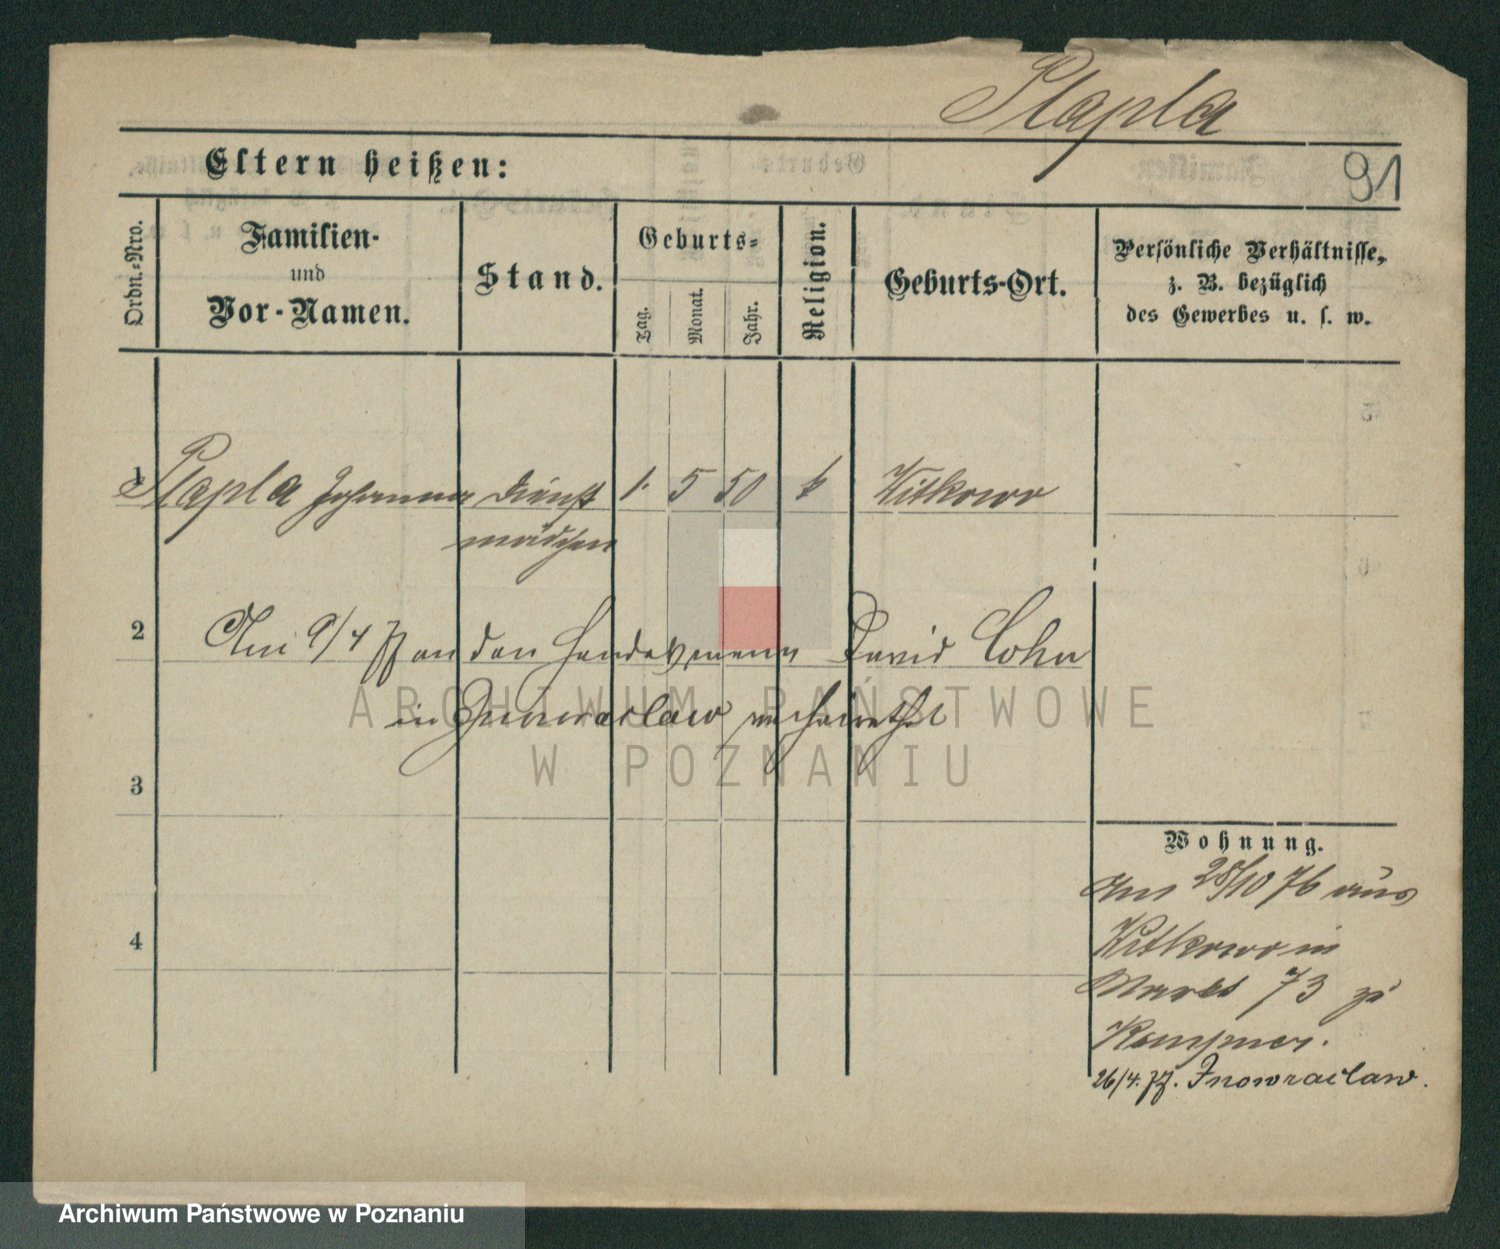 Stapla
91
Eltern heißen:
Ordn.-Nro.
Familien-
und
Vor-Namen.
Stand.
Geburts-
Tag.
Monat.
Jahr.
Religion.
Geburts-Ort.
Persönliche Verhältnisse,
z. B. bezüglich
des Gewerbes u. s. w.
1 Stapla Johanna Dienst 1. 5 50 k Witkowo
mädchen
2 Am 9/4 77 an den Handelsmann David Cohn
in Inowraclaw verheirathet
3
4
Wohnung.
Am 28/10 76 aus
Witkowo in
Markt 73 zu
Kempner.
26/4. 77. Inowraclaw.
ARCHIWUM PAŃSTWOWE
W POZNANIU
Archiwum Państwowe w Poznaniu